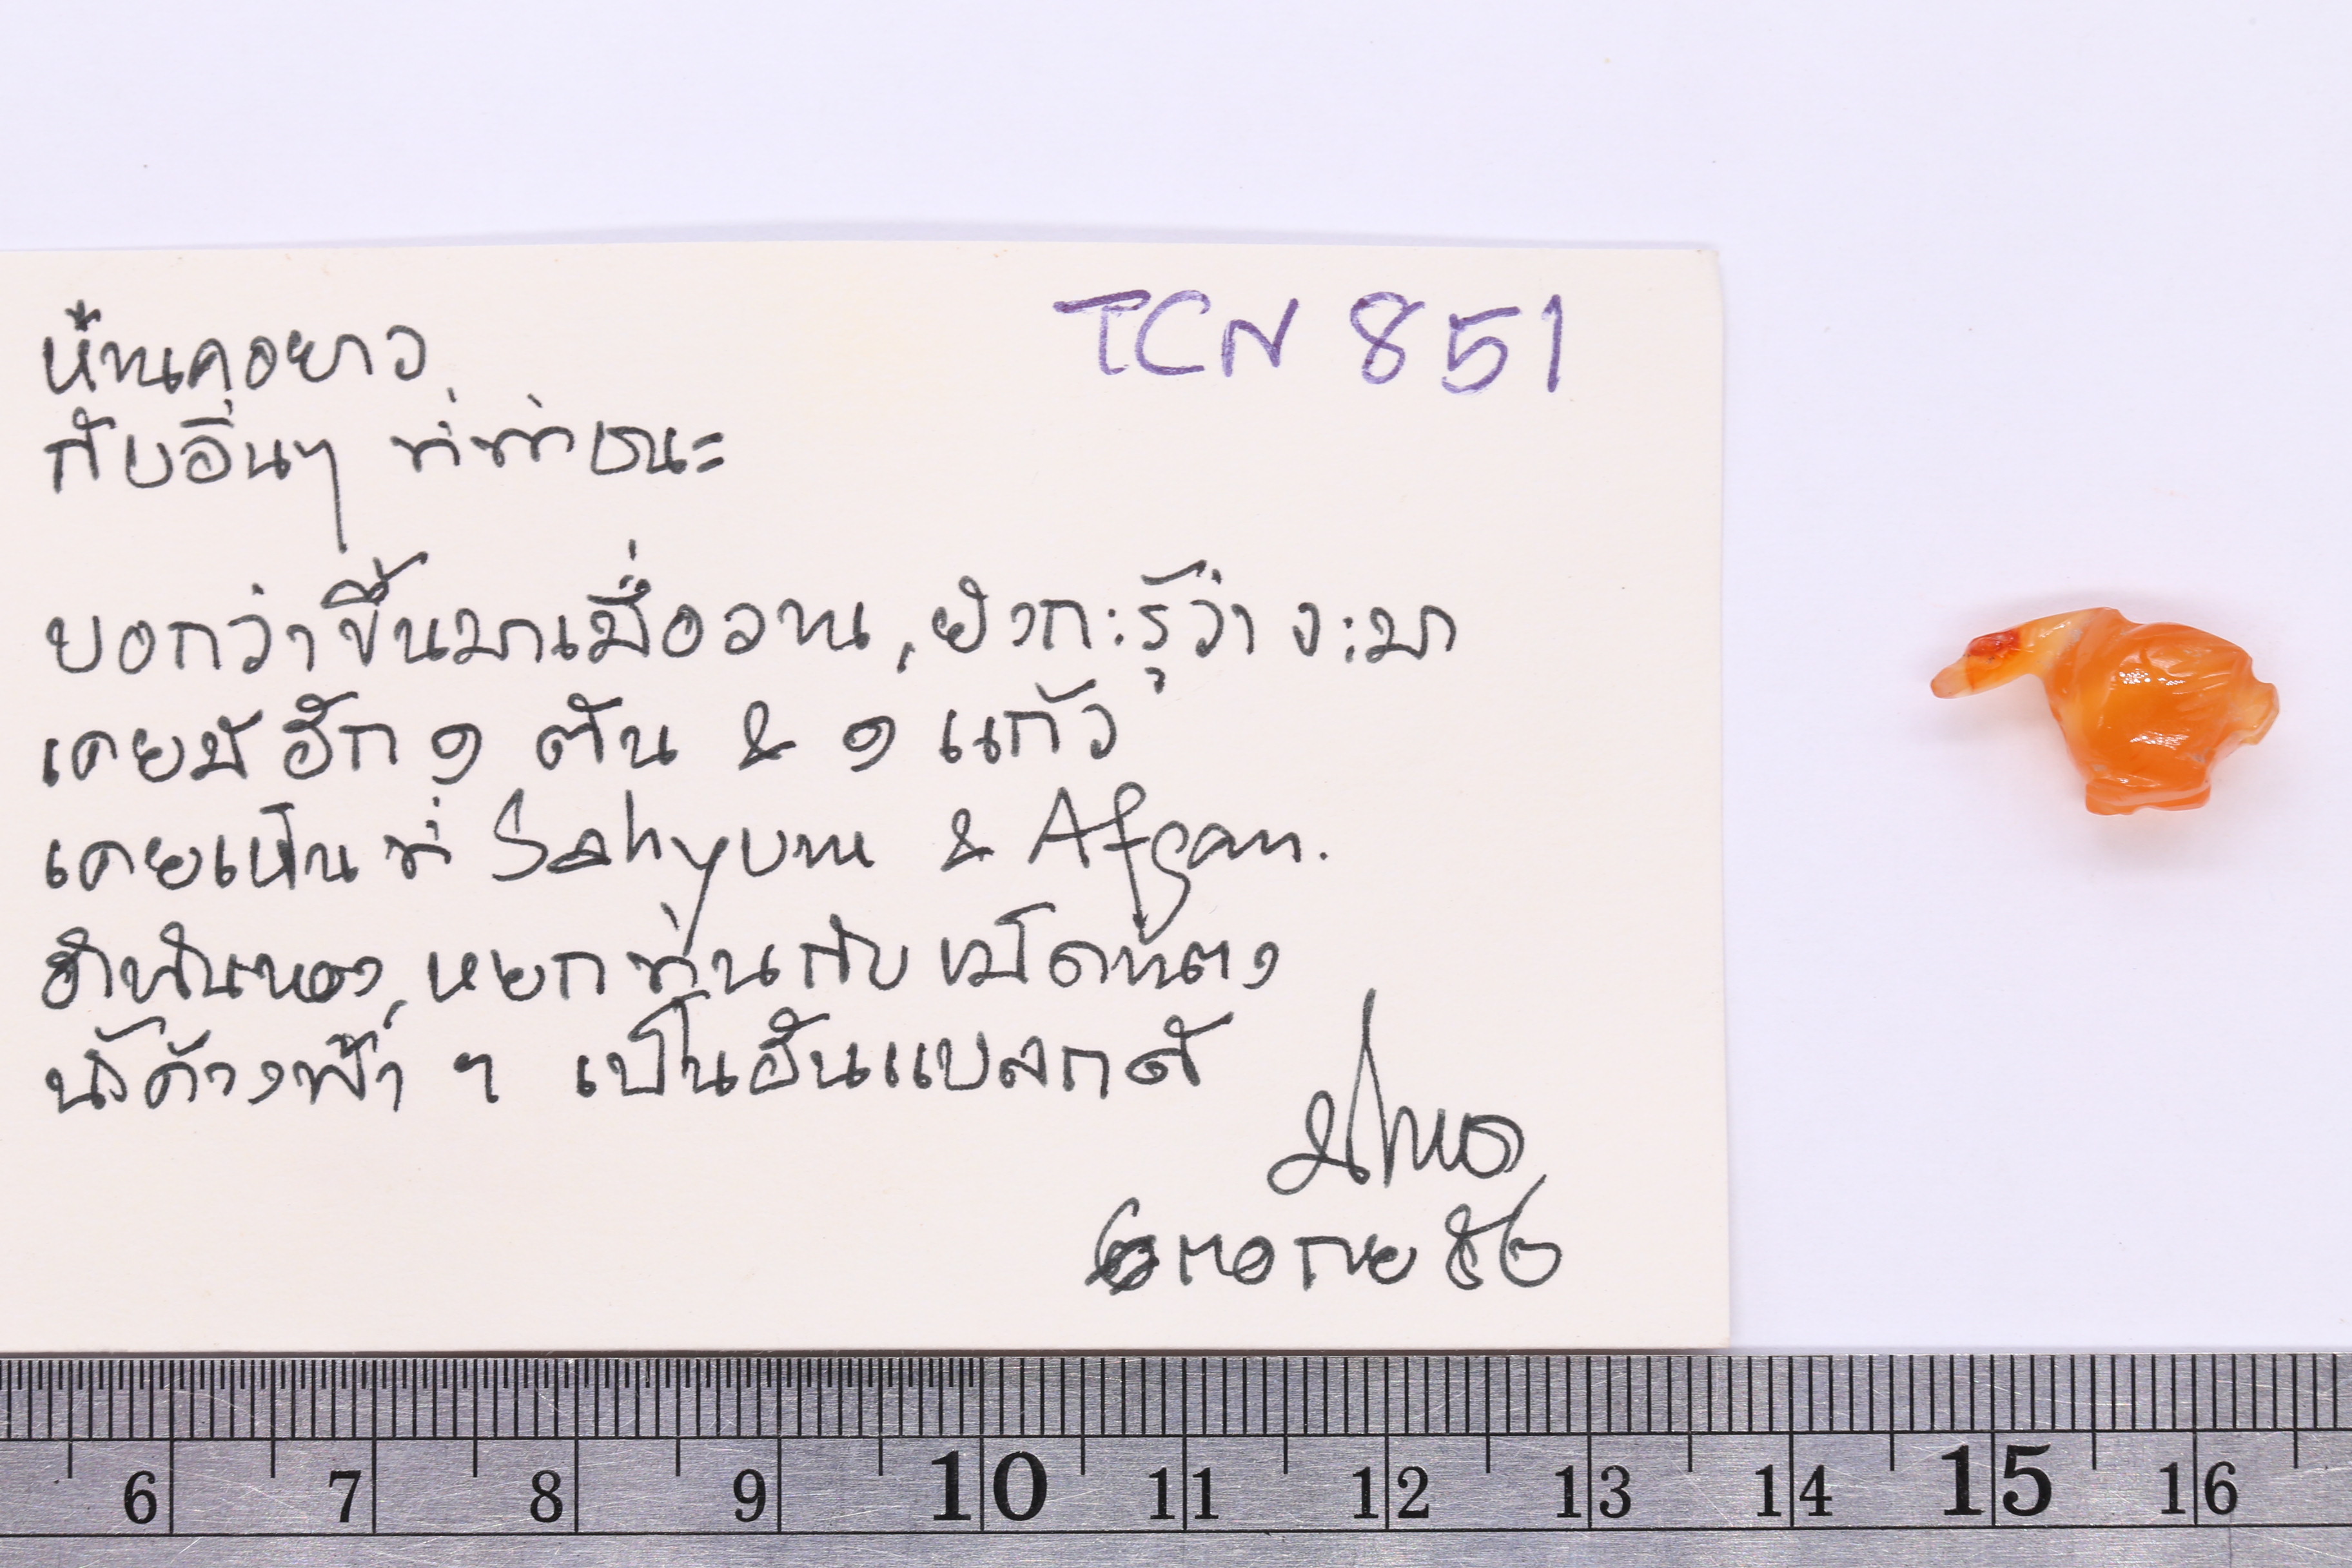 TCN 851
ห่านคอยาว
กับอื่นๆ ที่ท่าชนะ
บอกว่าขึ้นมาเมื่อวาน, ยังกะรู้ว่าจะมา
เคยมีอีก ๑ ตัน & ๑ แก้ว
เคยเห็นที่ Sahyum & Afgan.
อำพันทอง, หยก
น้ำค้างฟ้า ฯ เป็นอันแปลกดี
บัญชา
๖ ตอกย ๕๒
6 7 8 9 10 11 12 13 14 15 16